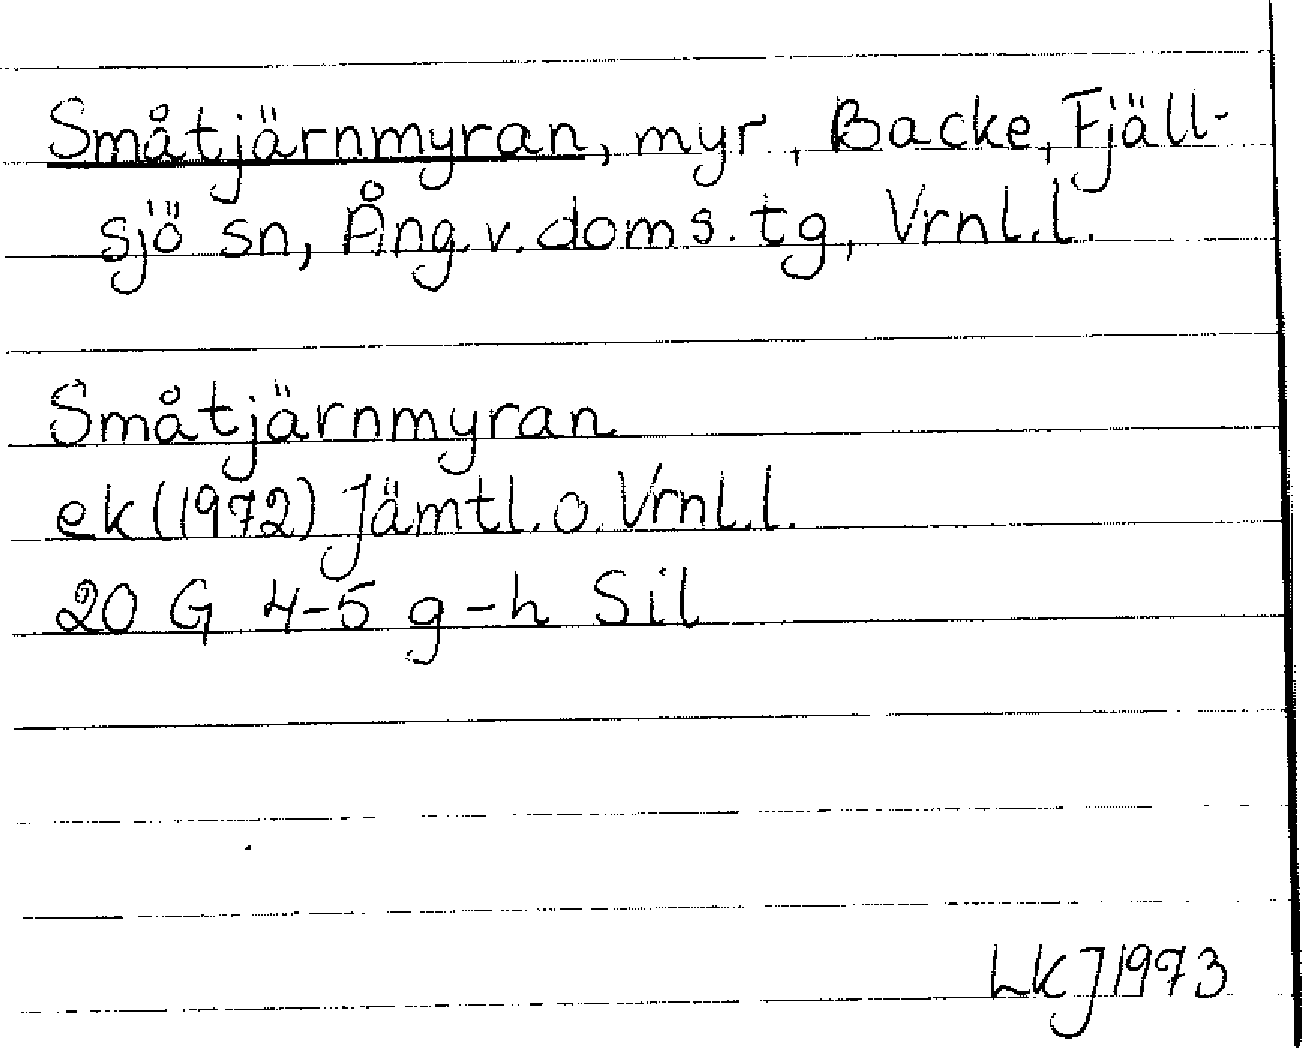 Småtjärnmyran, myr, Backe, Fjäll-
sjö sn, Ång v. doms. tg, Vrnl.l.
Småtjärnmyran
ek (1972) Jämtl. o. Vrnl.l.
20 G 4-5 g-h Sil
LKJ 1973